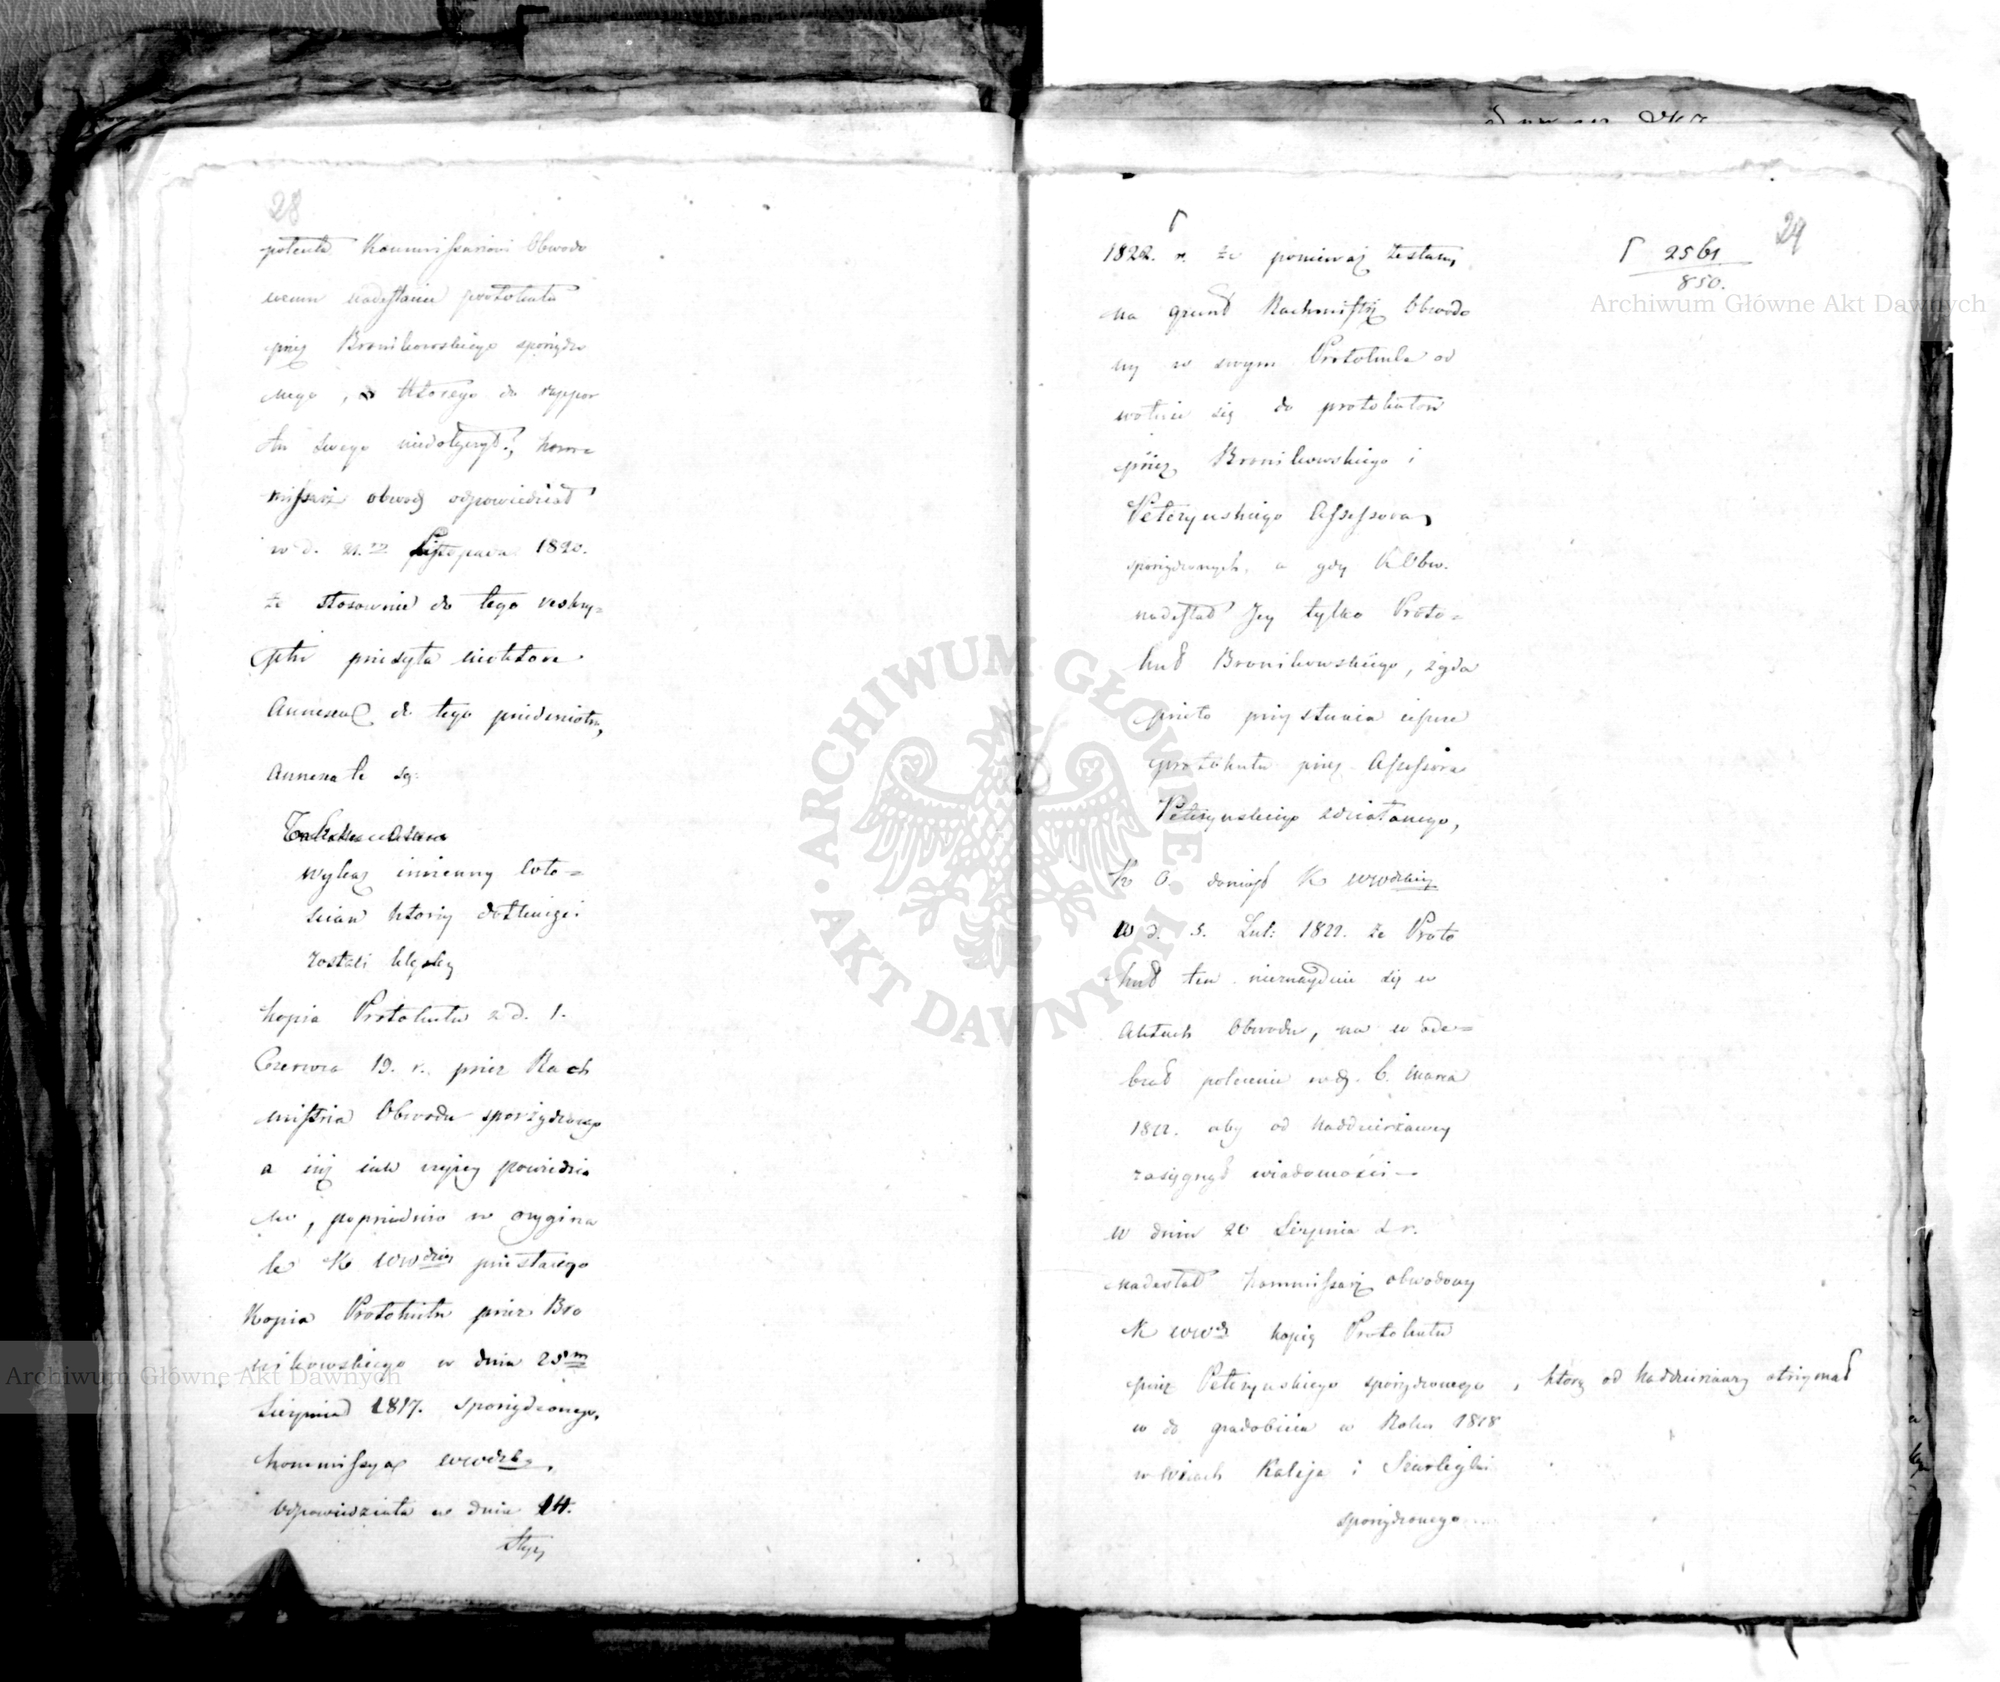 28
poleciła Kommissarzowi Obwodo
wemu nadesłanie protokułu
przez Bronikowskiego sporządzo
nego, którego do rappor
tu swego niedołączył, kom
missarz obwod odpowiedział
w d. 21. Listopada 1820.
że stosownie do tego reskry=
ptu przesyła niektóre
Annexa do tego przedmiotu,
Annexa te są:
wykaz imienny wło=
scian którzy dotknięci
zostali klęską
kopia Protokułu z d. 1.
Czerwca 19. r. przez Rach
mistrza Obwodu sporządzonego
a iuż iak wyżej powiedzia
no, poprzednio w orygina
le K WWdzkiej przesłanego
Kopia Protokułu przez Bro
nikowskiego w dniu 25m
Sierpnia 1817. sporządzonego,
Kommissya WWdzka,
odpowiedziała w dniu 14.
Stycz
29
Γ 2561
850.
Γ
1822. r. że ponieważ zesłany
na grunt Rachmistrz Obwodo
wy w swym Protokule od
wołuie się do protokułów
przez Bronikowskiego i
Petrzyńskiego Assessora
sporządzonych, a gdy KObw.
nadesłał Jey tylko Proto=
kuł Bronikowskiego, żąda
przeto przysłania ieszcze
protokułu przez Assessora
Petrzyńskiego zdziałanego,
K O. doniósł K WWdzkiej
w d. 5. Lut: 1822. że Proto
kuł ten nieznayduie się w
Aktach Obwodu, na co ode=
brał polecenie w d. 6. Marca
1822. aby od Naddzierżawcy
zasięgnął wiadomości —
w dniu 20 Sierpnia t. r.
nadesłał Kommissarz obwodowy
K WWd kopię Protokułu
przez Petrzyńskiego sporządzonego, którą od Naddzierżawcy otrzymał
w do gradobicia w Roku 1818
w wsiach Kalija i
sporządzonego
Archiwum Główne Akt Dawnych
ARCHIWUM GŁÓWNE AKT DAWNYCH
Archiwum Główne Akt Dawnych